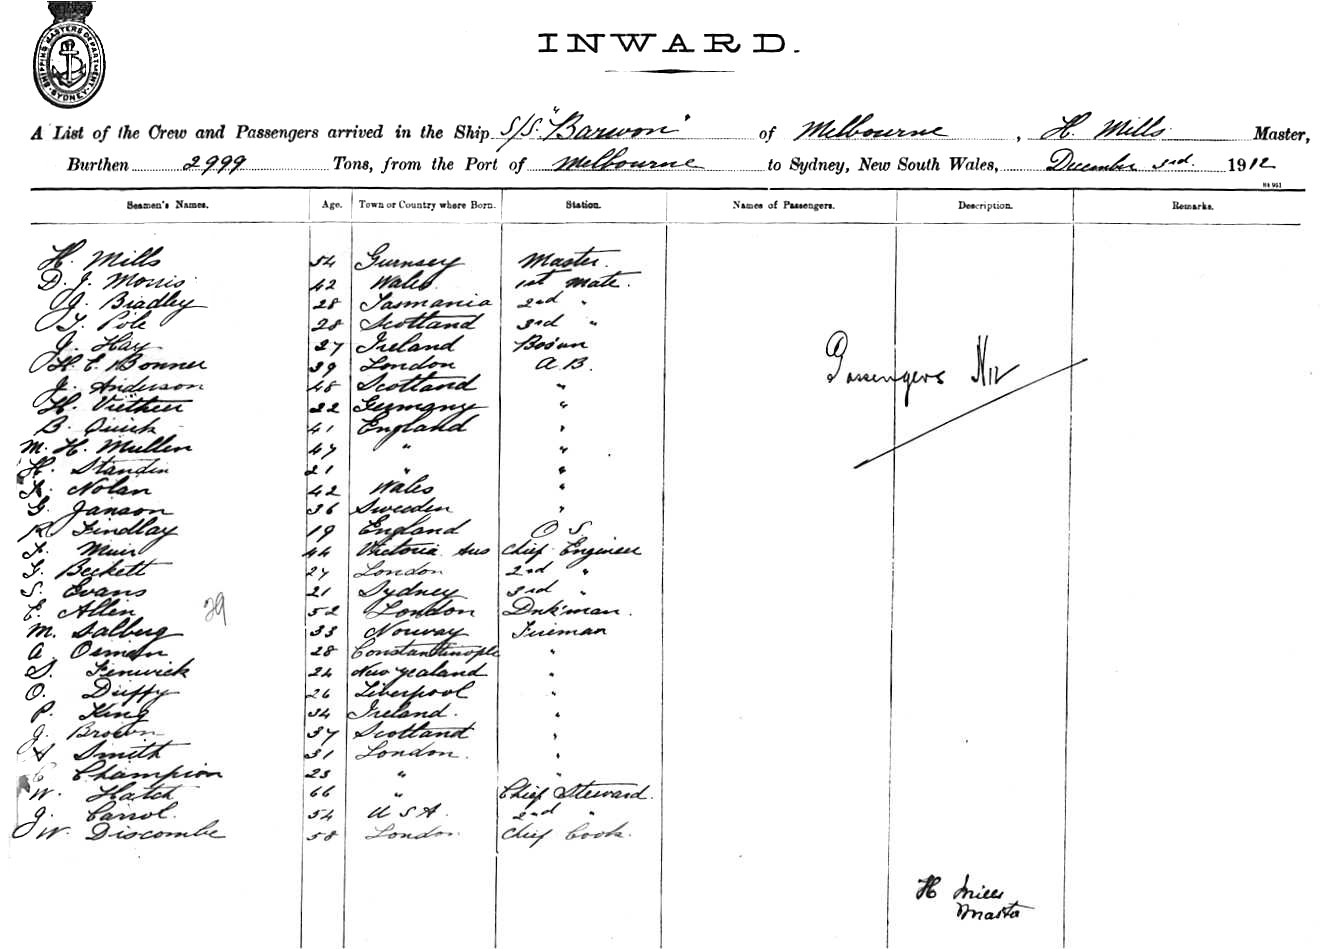 SHIPPING MASTERS DEPARTMENT SYDNEY
INWARD.
A List of the Crew and Passengers arrived in the Ship S/S. "Barwon" of Melbourne, H. Mills Master,
Burthen 2999 Tons, from the Port of Melbourne to Sydney, New South Wales, December 3rd. 1912
Seamen's Names. Age. Town or Country where Born. Station. Names of Passengers. Description. Remarks.
H. Mills 54 Gurnsey Master.
D. J. Morris 42 Wales 1st Mate.
J. Bradley 28 Tasmania 2nd "
T. Pole 28 Scotland 3rd "
J. Hay 27 Ireland Bosun
H. E. Bonner 39 London A.B.
J. Anderson 48 Scotland "
H. Viethen 22 Germany "
B. Quick 41 England "
M. H. Mullen 47 " "
H. Standin 21 " "
Nolan 42 Wales "
G. Janson 36 Sweden "
R. Findlay 19 England O S
Muir 44 Victoria Aus Chief Engineer
F. Beckett 27 London 2nd "
S. Evans 21 Sydney 3rd "
E. Allen 52 London Dnk'man.
29
M. Salberg 33 Norway Fireman
A. Osman 28 Constantinople "
S. Fenwick 24 New Zealand "
O. Duffy 26 Liverpool "
P. King 34 Ireland. "
J. Brown 37 Scotland "
Smith 31 London. "
C Champion 23 " "
W. Hatch 66 " Chief Steward.
J. Carrol. 54 U S A. 2nd "
W. Discombe 58 London Chief Cook.
Passengers Nil
H Mills
Master